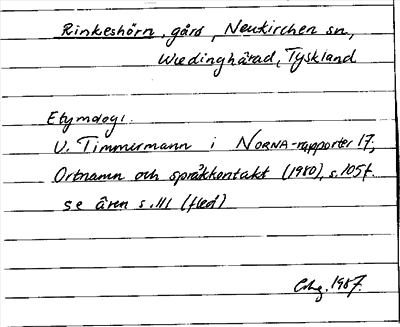 Rinkeshörn, gård, Neukirchen sn,
Wiedinghärad, Tyskland
Etymologi.
U. Timmermann i NORNA-rapporter 17,
Ortnamn och språkkontakt (1980), s. 105f.
se även s. 111 (fled)
1987.